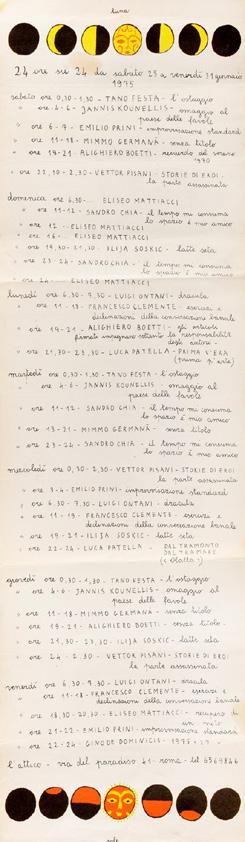 luna
24 ore su 24 da sabato 25 a venerdì 31 gennaio
1975
sabato ore 0,30-1,30 - TANO FESTA - l'ostaggio
" ore 4-6 - JANNIS KOUNELLIS - omaggio al
paese delle favole
" ore 6-7 - EMILIO PRINI - improvvisazione standard
" ore 11-18 - MIMMO GERMANÀ - senza titolo
" ore 19-21 ALIGHIERO BOETTI -
1970
" ore 22,10-2,30 - VETTOR PISANI - STORIE DI EROI.
la parte assassinata
domenica ore 6,30- ELISEO MATTIACCI
" ore 11-12 - SANDRO CHIA - il tempo mi consuma
lo spazio è mio amico
" ore 12 - ELISEO MATTIACCI
" ore 16 - ELISEO MATTIACCI
" ore 19,30-21,30 - ILIJA SOSKIC - latte seta
" ore 23-24 - SANDRO CHIA - il tempo mi consuma
lo spazio è mio amico
" ore 24 - ELISEO MATTIACCI
lunedì ore 6,30-7,30 - LUIGI ONTANI - dracula
" ore 11-18 - FRANCESCO CLEMENTE - esercizi e
declinazioni della conversazione banale
" ore 19-21 - ALIGHIERO BOETTI - gli articoli
firmati impegnano soltanto la responsabilità
degli autori -
" ore 21,30-23,30 - LUCA PATELLA - PRIMA V'ERA
martedì ore 0,30-1,30 - TANO FESTA - l'ostaggio
" ore 4-6 - JANNIS KOUNELLIS - omaggio al
paese delle favole
" ore 11-12 - SANDRO CHIA - il tempo mi consuma
lo spazio è mio amico
" ore 13-21 - MIMMO GERMANÀ - senza titolo
" ore 23-24 - SANDRO CHIA - il tempo mi consuma
lo spazio è mio amico
mercoledì ore 0,30-2,30 - VETTOR PISANI - STORIE DI EROI
la parte assassinata
" ore 3-4 - EMILIO PRINI - improvvisazione standard
" ore 6,30-7,30 - LUIGI ONTANI - dracula
" ore 11-19 - FRANCESCO CLEMENTE - esercizi e
declinazioni della conversazione banale
" ore 19-21 - ILIJA SOSKIC - latte seta
" ore 22-24 - LUCA PATELLA - DAL TRAMONTO
DAL TRAMARE
giovedì ore 0,30-1,30 - TANO FESTA - l'ostaggio
" ore 4-6 - JANNIS KOUNELLIS - omaggio al
paese delle favole
" ore 11-18 - MIMMO GERMANÀ - senza titolo
" ore 19-21 - ALIGHIERO BOETTI - senza titolo
" ore 21,30-23,30 - ILIJA SOSKIC - latte seta
" ore 24-2,30 - VETTOR PISANI - STORIE DI EROI
la parte assassinata
venerdì ore 6,30-7,30 - LUIGI ONTANI - dracula
" ore 11-18 - FRANCESCO CLEMENTE - esercizi e
declinazioni della conversazione banale
" ore 18,30-20,30 - ELISEO MATTIACCI - recupero di
un mito
" ore 21-22 - EMILIO PRINI - improvvisazione standard
" ore 22-24 - GINO DE DOMINICIS - 1975
l'attico - via del paradiso 41 - roma - tel 6569846
sole